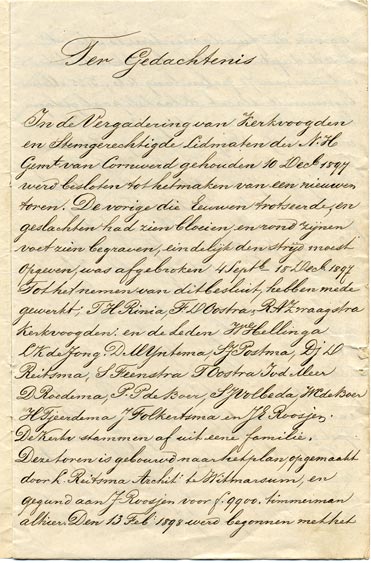 Ter Gedachtenis
In de Vergadering van Kerkvoogden
en Stemgerechtigde Lidmaten der N. H
Gemt. van Cornwerd gehouden 10 Decb 1897
werd besloten tot het maken van een nieuwen
toren. De vorige die Eeuwen trotseerde, en
geslachten had zien bloeien, en rond zijnen
voet zien begraven, eindelijk den strijd moest
opgeven, was afgebroken 4 Sept. 15 Decb 1897
Tot het nemen van dit besluit, hebben mede
gewerkt; T H Rinia, F D Oostra, R A Zwaagstra
Kerkvoogden. en de Leden Hellinga
L K de Jong. D. M Yntema, Postma, Dj D
Reitsma, S Feenstra T Oostra
D Roedema, P. P de Boer, S J Wolbeda, W. de Boer
H Tjeerdema J Folkertsma en J E Roosjen.
De kerk stammen af uit eene familie.
Deze toren is gebouwd naar het plan opgemaakt
door L. Reitsma Archit. te Witmarsum, en
gegund aan J Roosjen voor f. 9900. timmerman
alhier. Den 13 Feb 1898 werd begonnen met het